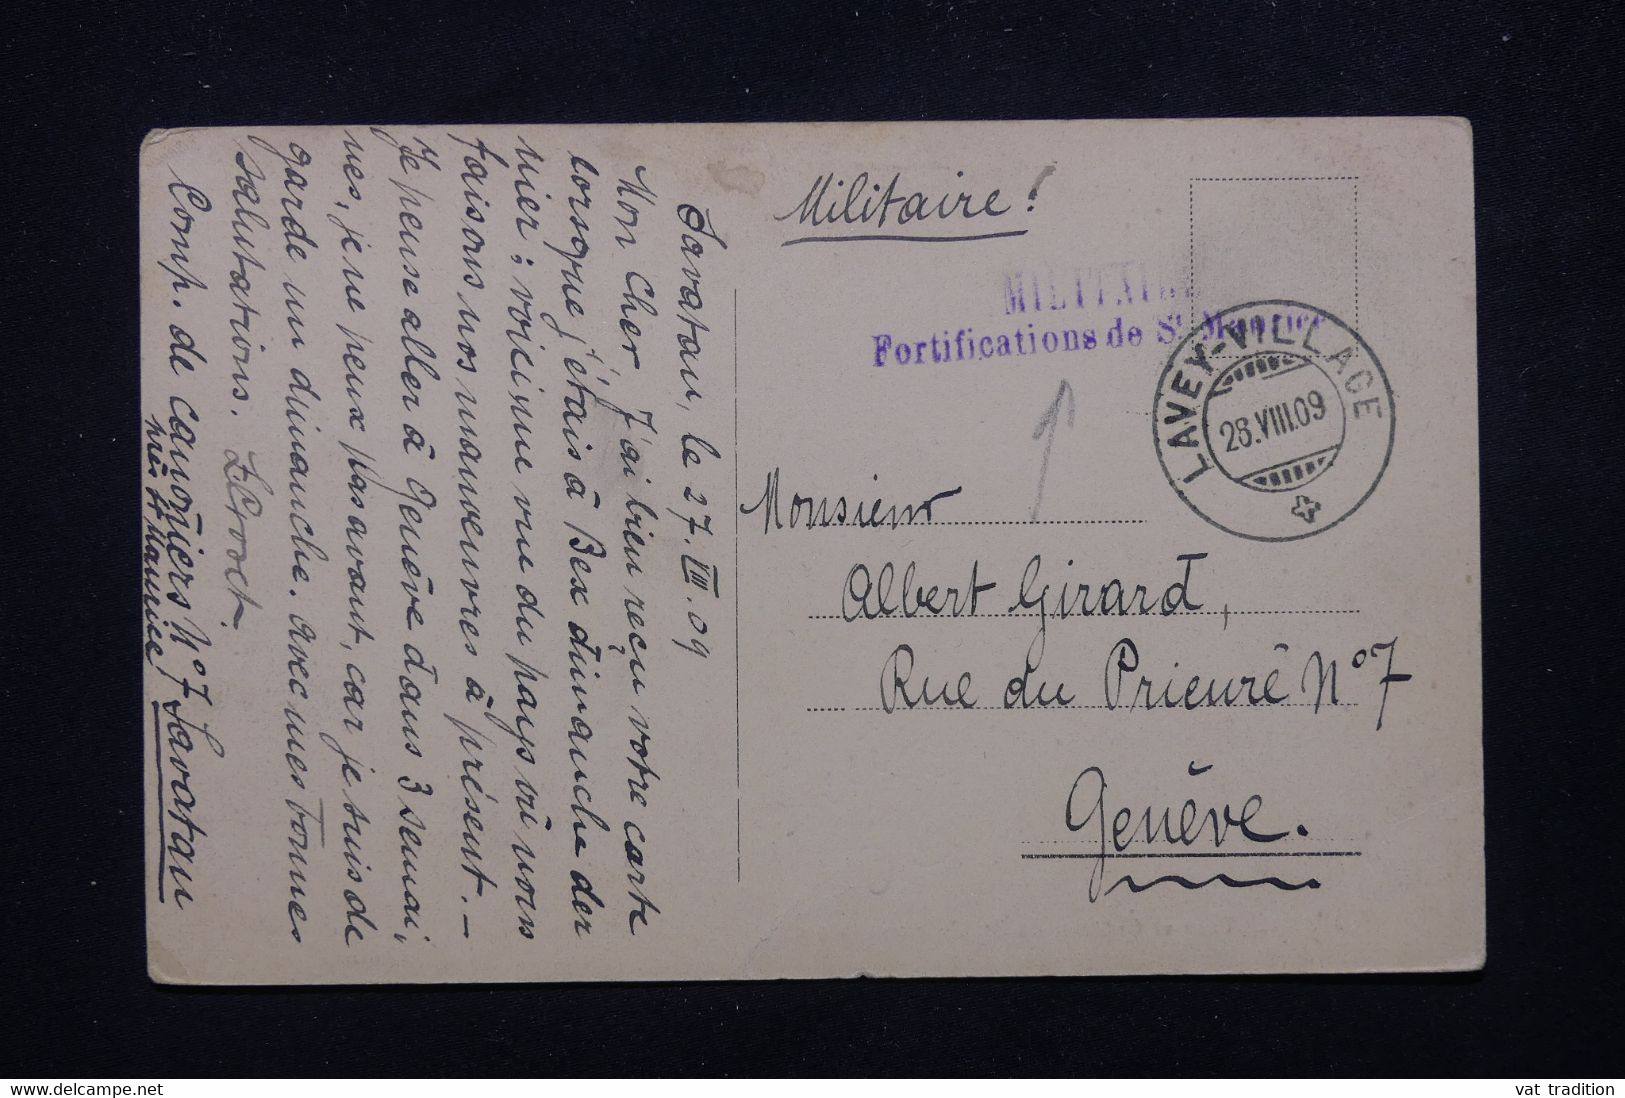 Savatan, le 27.VIII.09
Mon Cher, J'ai bien reçu votre carte
lorsque j'étais à Bex dimanche der
nier; voici une vue du pays où nous
faisons nos manœuvres à présent. -
Je pense aller à Genève dans 3 semai,
nes, je ne peux pas avant, car je suis de
garde un dimanche. avec mes bonnes
salutations.
Comp. de canoniers N° 7 Savatan
près St Maurice
Militaire!
MILITAIRE
Fortifications de St Maurice
LAVEY-VILLAGE
28.VIII.09
Monsieur
Albert Girard,
Rue du Prieuré N° 7
Genève.
Delcampe.net
vat tradition